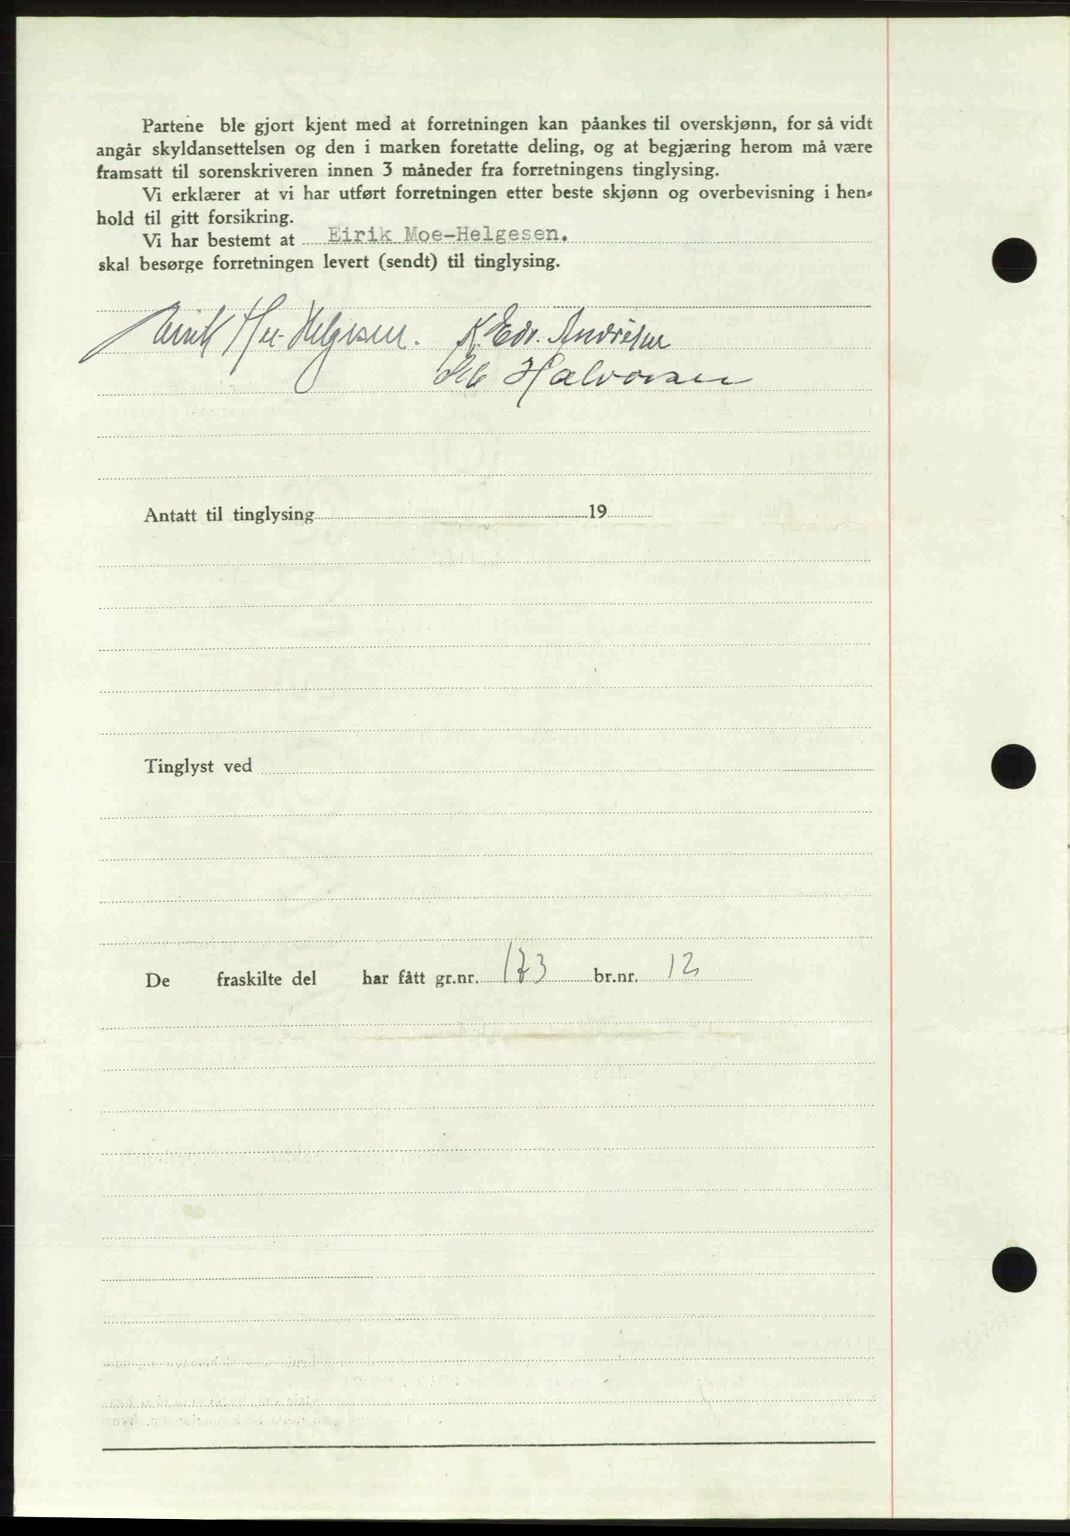 Partene ble gjort kjent med at forretningen kan påankes til overskjønn, for så vidt
angår skyldansettelsen og den i marken foretatte deling, og at begjæring herom må være
framsatt til sorenskriveren innen 3 måneder fra forretningens tinglysing.
Vi erklærer at vi har utført forretningen etter beste skjønn og overbevisning i hen-
hold til gitt forsikring.
Vi har bestemt at Eirik Moe-Helgesen.
skal besørge forretningen levert (sendt) til tinglysing.
Eirik Moe-Helgesen. K. Edv. Andresen
Halvorsen
Antatt til tinglysing 19
Tinglyst ved
De fraskilte del har fått gr.nr. 173 br.nr. 12